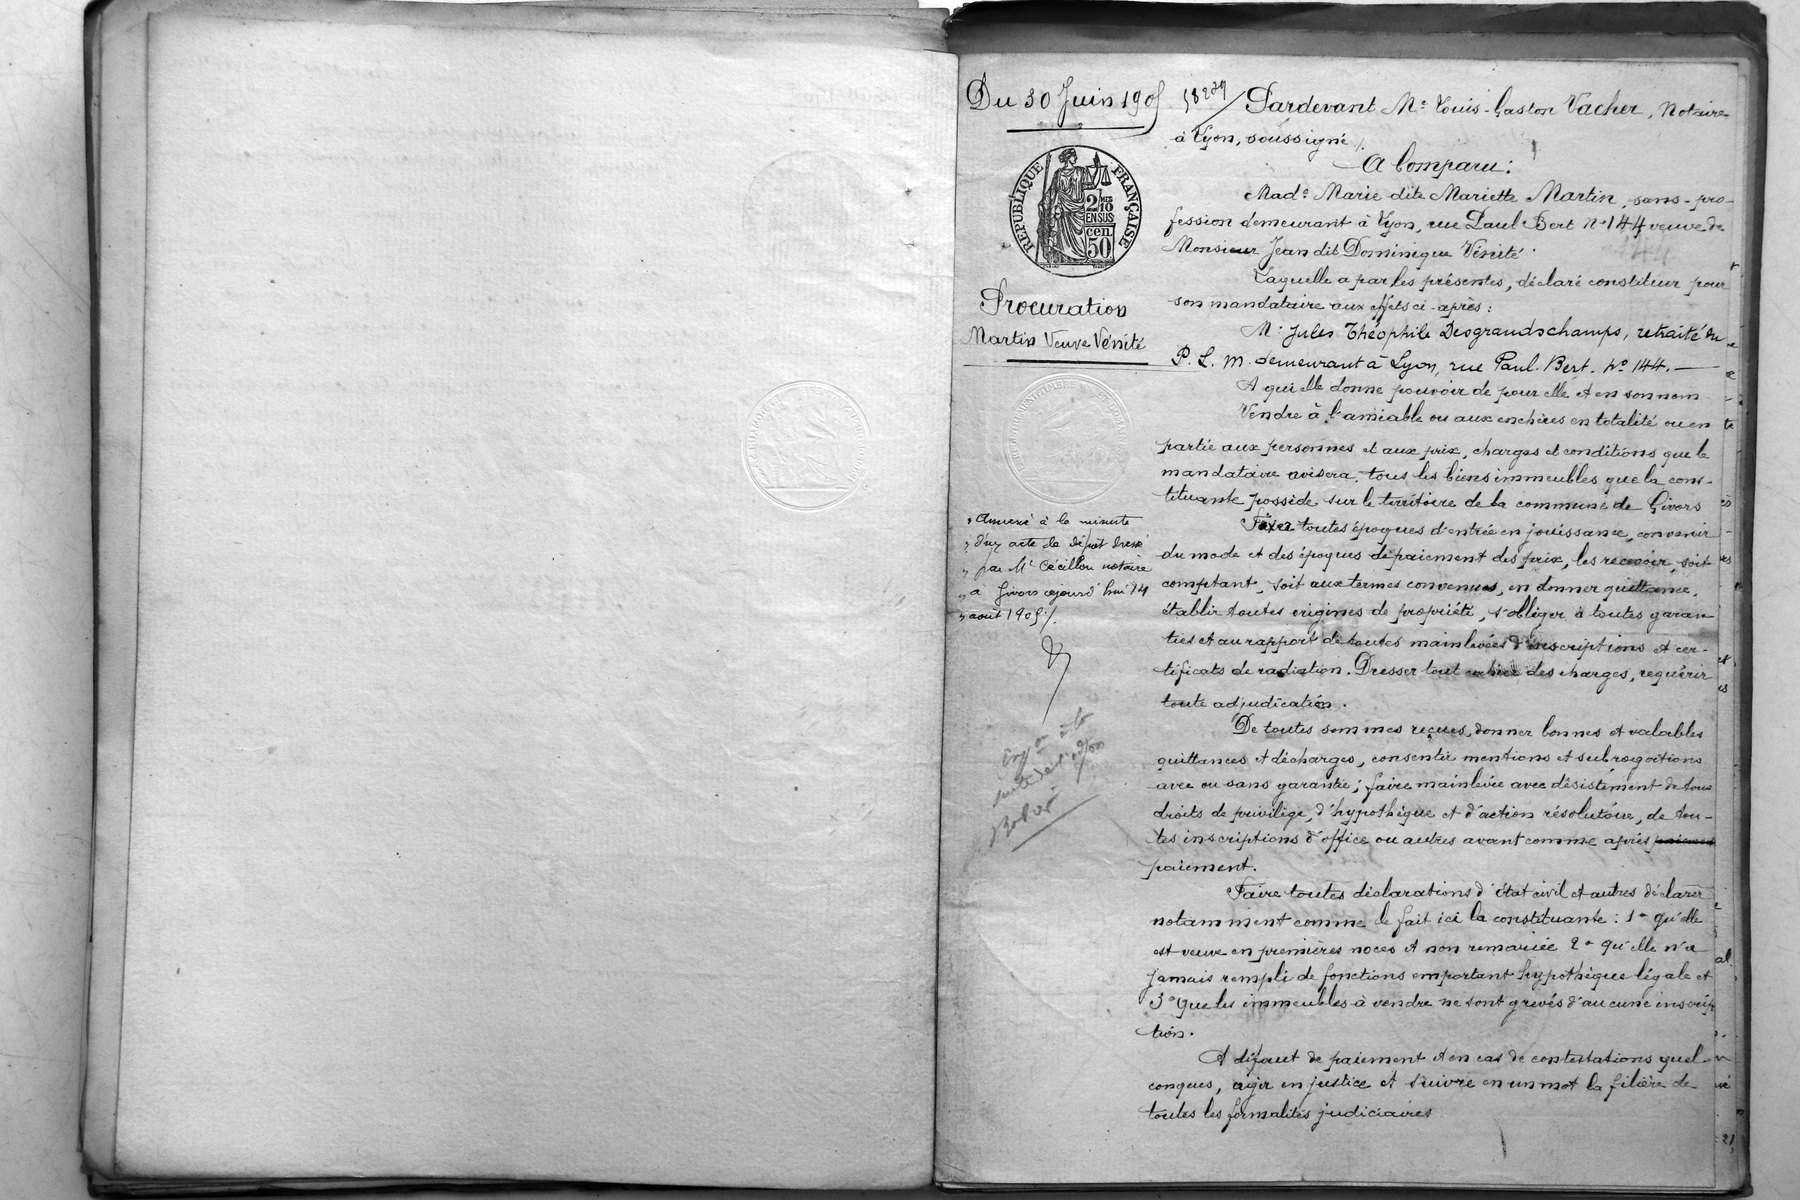 Du 30 Juin 1905
58279
RÉPUBLIQUE FRANÇAISE
2 MES 10 EN SUS
50 cen
Procuration
Martin Veuve Vénité
Pardevant Me Louis-Gaston Vacher, Notaire
à Lyon, soussigné.
A Comparu:
Made Marie dite Mariette Martin, sans pro-
fession demeurant à Lyon, rue Paul Bert no 144 veuve de
Monsieur Jean dit Dominique Vénité.
Laquelle a par les présentes, déclaré constituer pour
son mandataire aux effets ci-après:
Mr Jules Théophile Desgrandschamps, retraité du
P. L. M. demeurant à Lyon, rue Paul-Bert. No 144.
A qui elle donne pouvoir de pour elle et en son nom
Vendre à l'amiable ou aux enchères en totalité ou en
partie aux personnes et aux prix, charges et conditions que le
mandataire avisera tous les biens immeubles que la cons-
tituante possède sur le territoire de la commune de Givors
Fixer toutes époques d'entrée en jouissance, convenir
du mode et des époques de paiement des prix, les recevoir, soit
comptant, soit aux termes convenus, en donner quittance,
établir toutes origines de propriété, s'obliger à toutes garan-
ties et au rapport de toutes mainlevées d'inscriptions et cer-
tificats de radiation. Dresser tout cahier des charges, requérir
toute adjudication.
De toutes sommes reçues, donner bonnes et valables
quittances et décharges, consentir mentions et subrogations
avec ou sans garantie; faire mainlevée avec désistement de tous
droits de privilège, d'hypothèque et d'action résolutoire, de tou-
tes inscriptions d'office ou autres avant comme après paiement
paiement.
Faire toutes déclarations d'état civil et autres déclarer
notamment comme le fait ici la constituante: 1o qu'elle
est veuve en premières noces et non remariée 2o qu'elle n'a
jamais rempli de fonctions emportant hypothèque légale et
3o que les immeubles à vendre ne sont grevés d'aucune inscrip
tion.
A défaut de paiement et en cas de contestations quel-
conques, agir en justice et suivre en un mot la filière de
toutes les formalités judiciaires
Annexé à la minute
d'un acte de dépôt dressé
par Me Cécillon notaire
à Givors cejourd'hui 14
août 1905